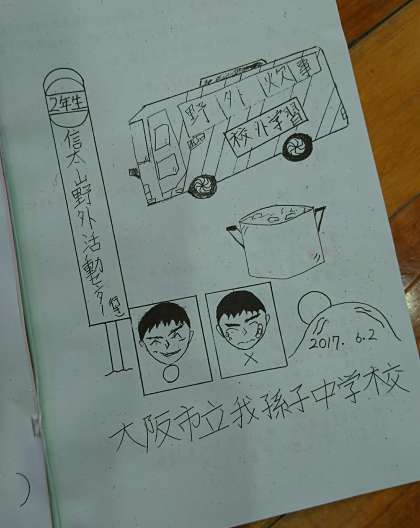 2年生
信太山野外活動センター行き
野外炊事
校外学習
2017. 6.2
大阪市立我孫子中学校